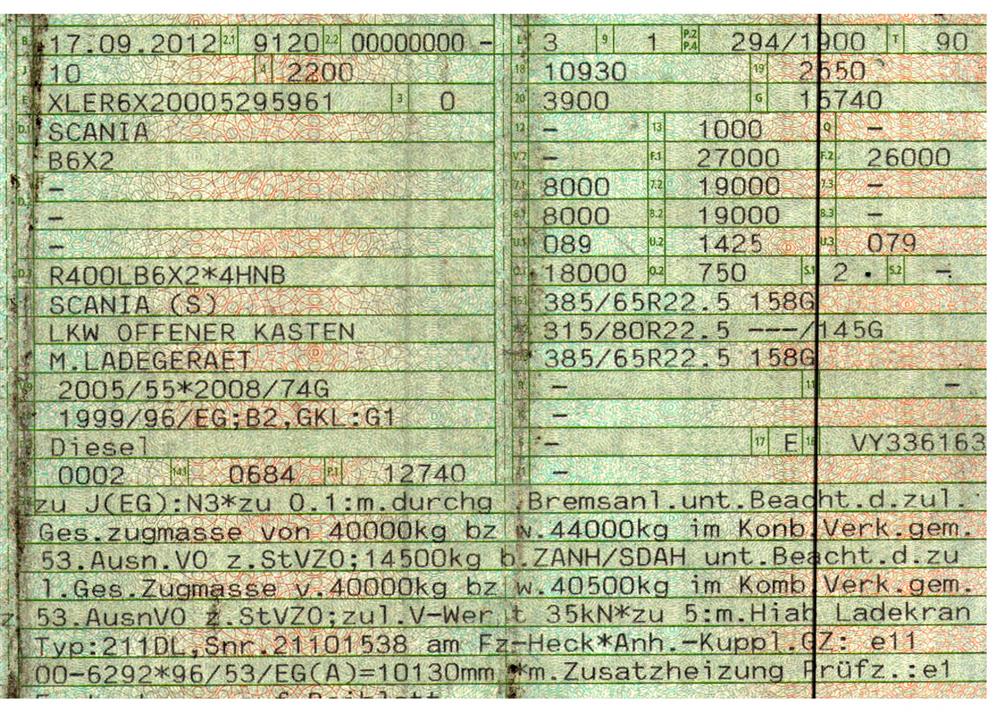 B 17.09.2012 2.1 9120 2.2 00000000 - L 3 9 1 P.2 P.4 294/1900 T 90
J 10 4 2200 18 10930 19 2550
E XLER6X20005295961 3 0 20 3900 G 15740
D.1 SCANIA 12 - 13 1000 Q -
B6X2 V.7 - F.1 27000 F.2 26000
- 7.1 8000 7.2 19000 7.3 -
- 8.1 8000 8.2 19000 8.3 -
- U.1 089 U.2 1425 U.3 079
D.3 R400LB6X2*4HNB O.1 18000 O.2 750 S.1 2 . S.2 -
SCANIA (S) 15.1 385/65R22.5 158G
LKW OFFENER KASTEN 315/80R22.5 ---/145G
M.LADEGERAET 385/65R22.5 158G
2005/55*2008/74G - 11 -
1999/96/EG;B2,GKL:G1 -
Diesel - 17 E 16 VY336163
0002 14.1 0684 P.1 12740 21 -
zu J(EG):N3*zu O.1:m.durchg Bremsanl.unt.Beacht.d.zul.
Ges.zugmasse von 40000kg bz w.44000kg im Konb.Verk.gem.
53.Ausn.VO z.StVZO;14500kg b.ZANH/SDAH unt.Beacht.d.zu
l.Ges.Zugmasse v.40000kg bz w.40500kg im Komb.Verk.gem.
53.AusnVO z.StVZO;zul.V-Wer t 35kN*zu 5:m.Hiab Ladekran
Typ:211DL,Snr.21101538 am Fz-Heck*Anh.-Kuppl.GZ: e11
00-6292*96/53/EG(A)=10130mm *m.Zusatzheizung Prüfz.:e1